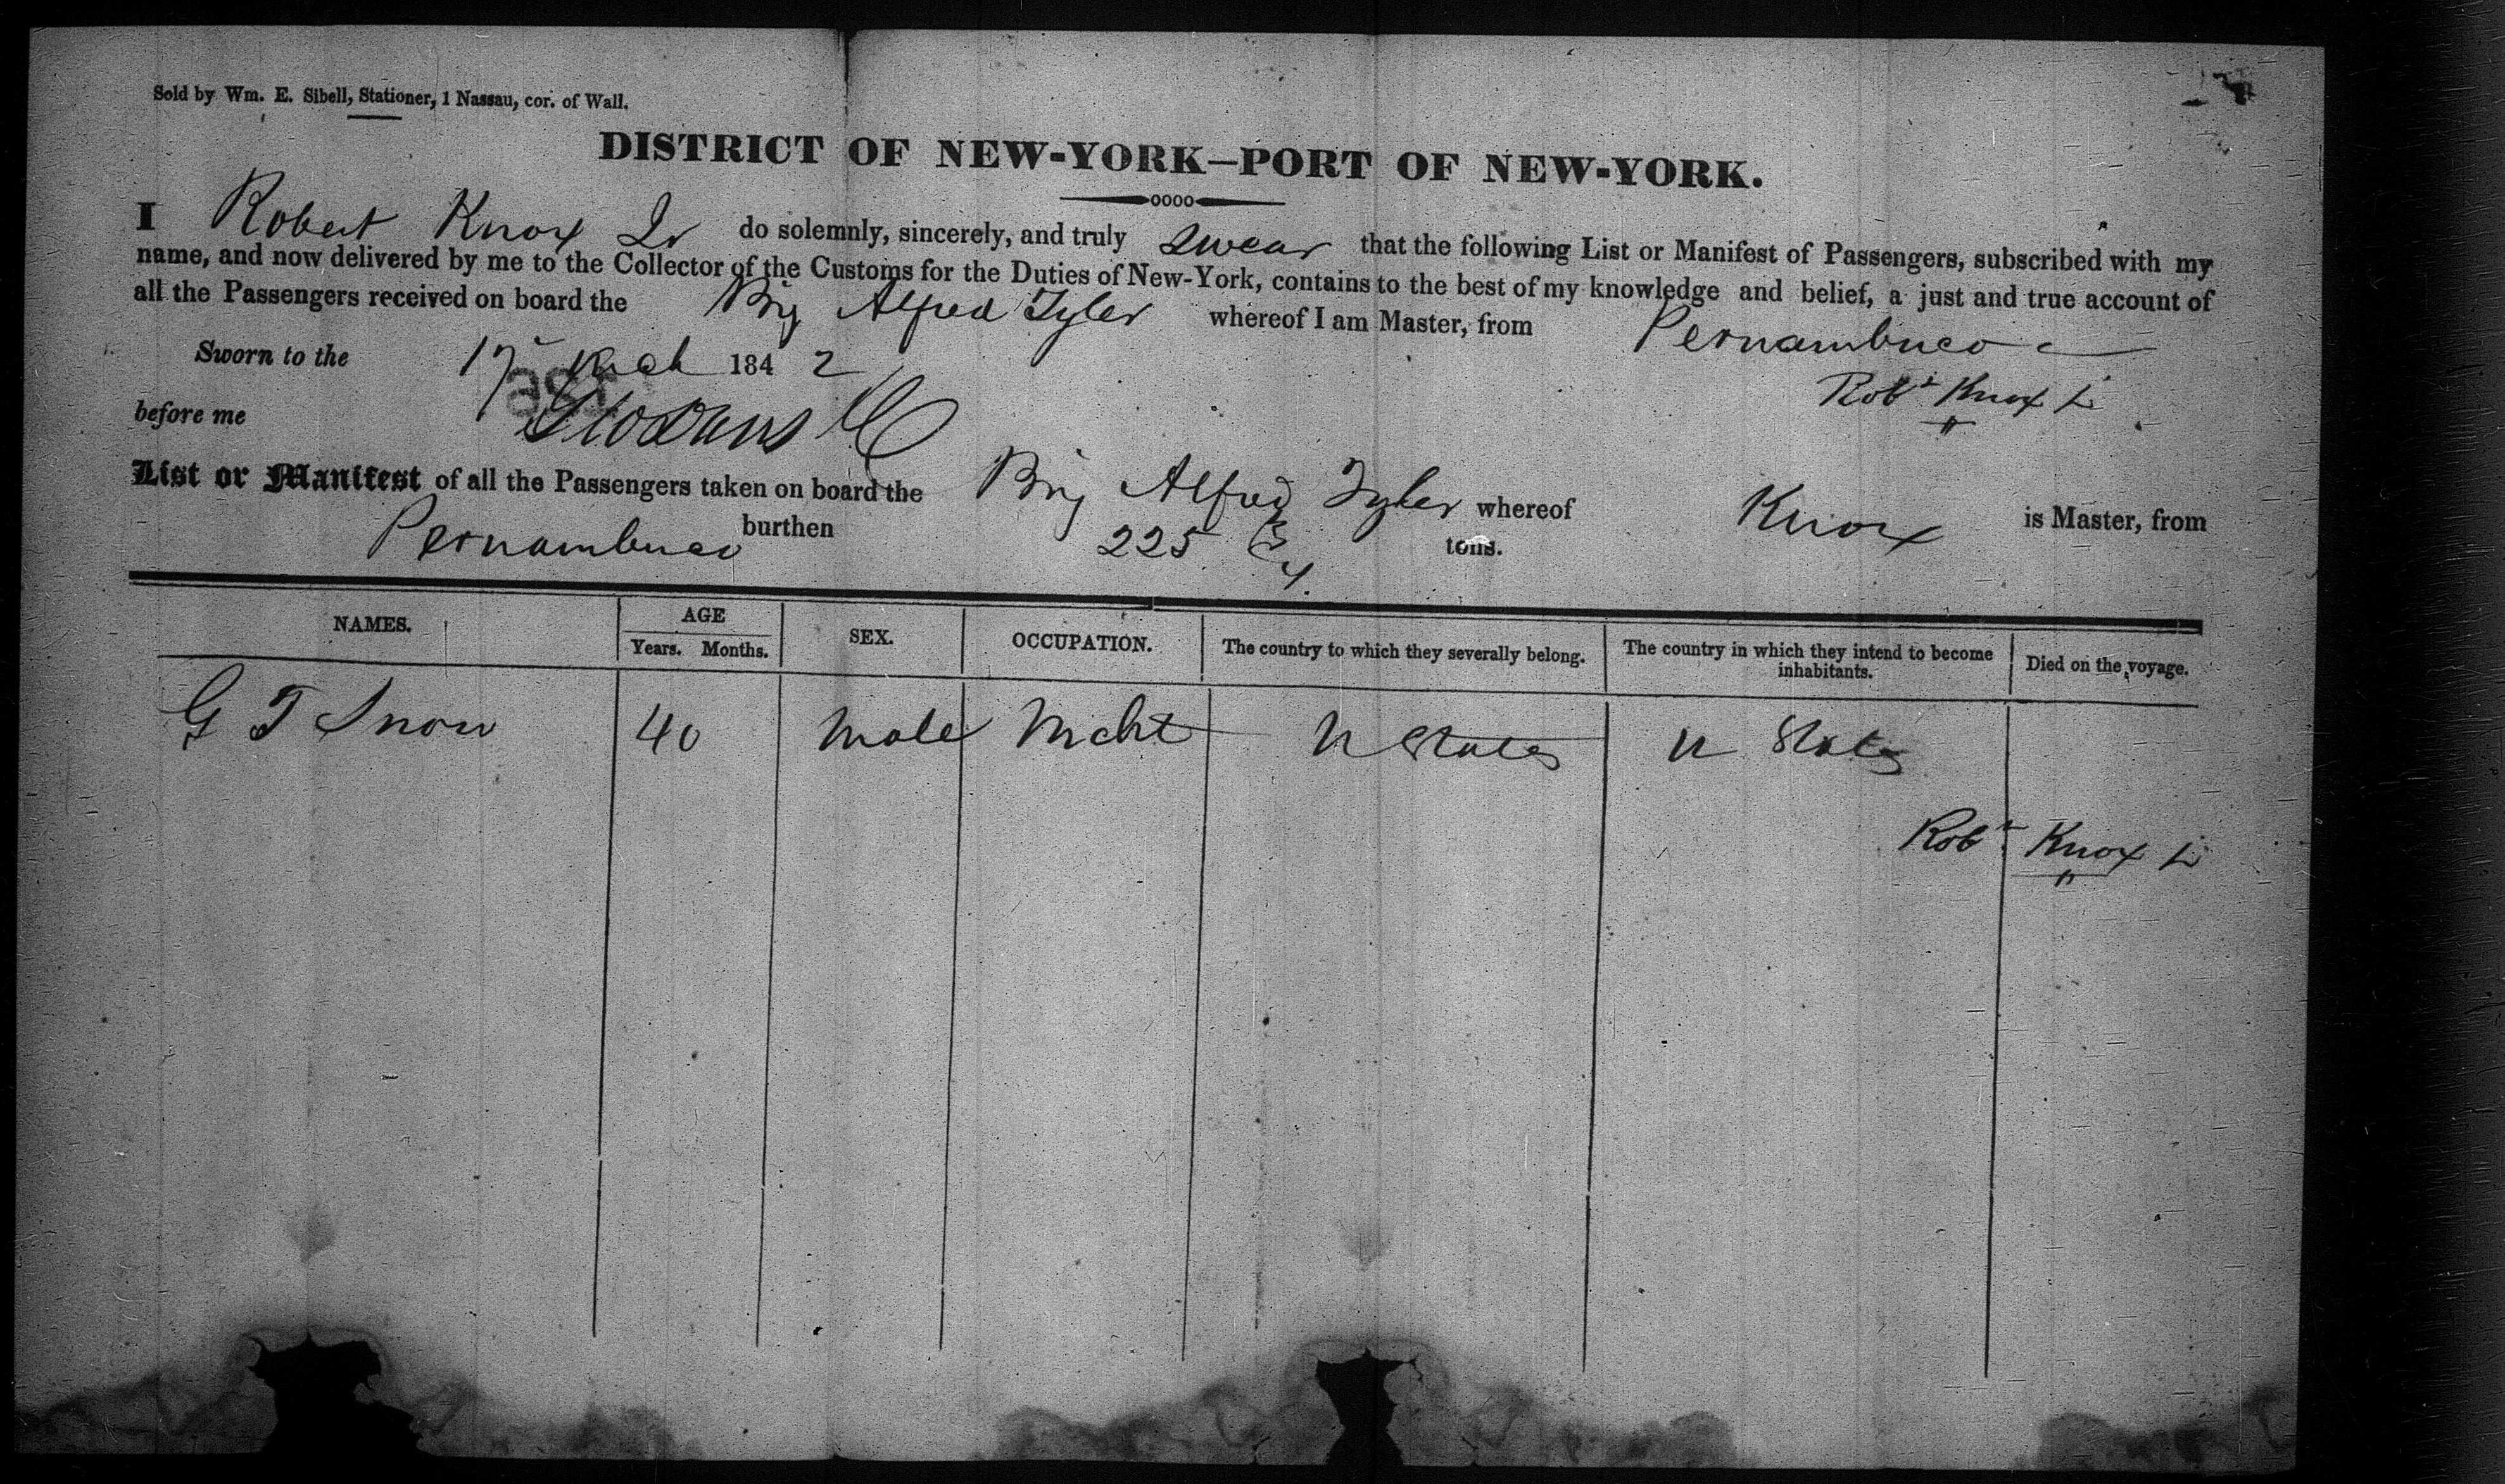 Sold by Wm. E. Sibell, Stationer, 1 Nassau, cor. of Wall.
DISTRICT OF NEW-YORK—PORT OF NEW-YORK.
I Robert Knox Jr do solemnly, sincerely, and truly swear that the following List or Manifest of Passengers, subscribed with my
name, and now delivered by me to the Collector of the Customs for the Duties of New-York, contains to the best of my knowledge and belief, a just and true account of
all the Passengers received on board the Brig Alfred Tyler whereof I am Master, from Pernambuco
Sworn to the 17 March 1842
Robt Knox Jr
before me
List or Manifest of all the Passengers taken on board the Brig Alfred Tyler whereof Knox is Master, from
Pernambuco burthen 225 tons.
NAMES. AGE SEX. OCCUPATION. The country to which they severally belong. The country in which they intend to become inhabitants. Died on the voyage.
Years. Months.
G T Snow 40 Male Mcht U States U States
Robt Knox Jr